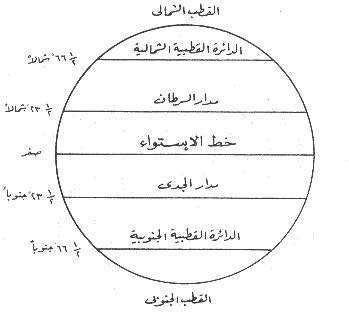 القطب الشمالى
الدائرة القطبية الشمالية
½ ٦٦° شمالاً
مدار السرطان
½ ٢٣° شمالاً
خط الإستواء
صفر
مدار الجدى
½ ٢٣° جنوباً
الدائرة القطبية الجنوبية
½ ٦٦° جنوباً
القطب الجنوبى